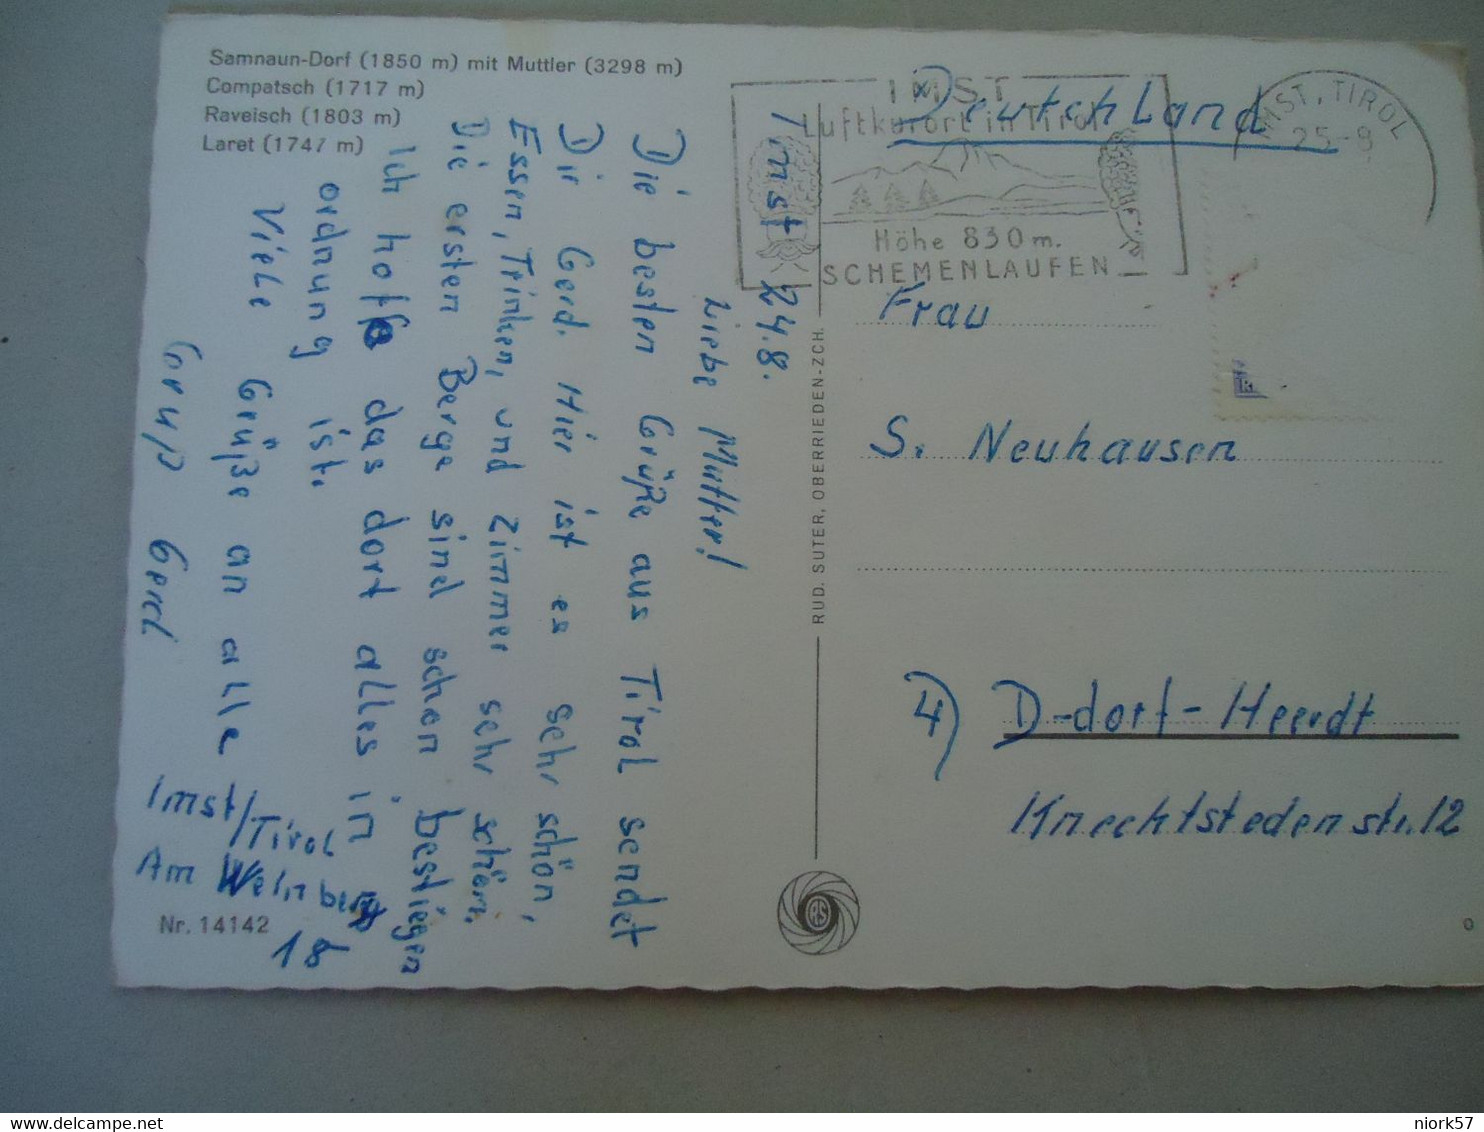 Samnaun-Dorf (1850 m) mit Muttler (3298 m)
Compatsch (1717 m)
Raveisch (1803 m)
Laret (1747 m)
Imst 24.8.
Liebe Mutter!
Die besten Grüße aus Tirol sendet
Dir Gerd. Hier ist es sehr schön,
Essen, Trinken, und Zimmer sehr schön.
Die ersten Berge sind schon bestiegen
Ich hoffe das dort alles in
ordnung ist.
Viele Grüße an alle
Gruß Gerd
Imst/Tirol
Am Weinberg
18
Nr. 14142
RUD. SUTER, OBERRIEDEN-ZCH.
RS
IMST
Luftkurort in Tirol
Höhe 830 m.
SCHEMENLAUFEN
IMST, TIROL
25-8
Deutschland
Frau
S. Neuhausen
4) D-dorf-Heerdt
Knechtstedenstr. 12
niork57